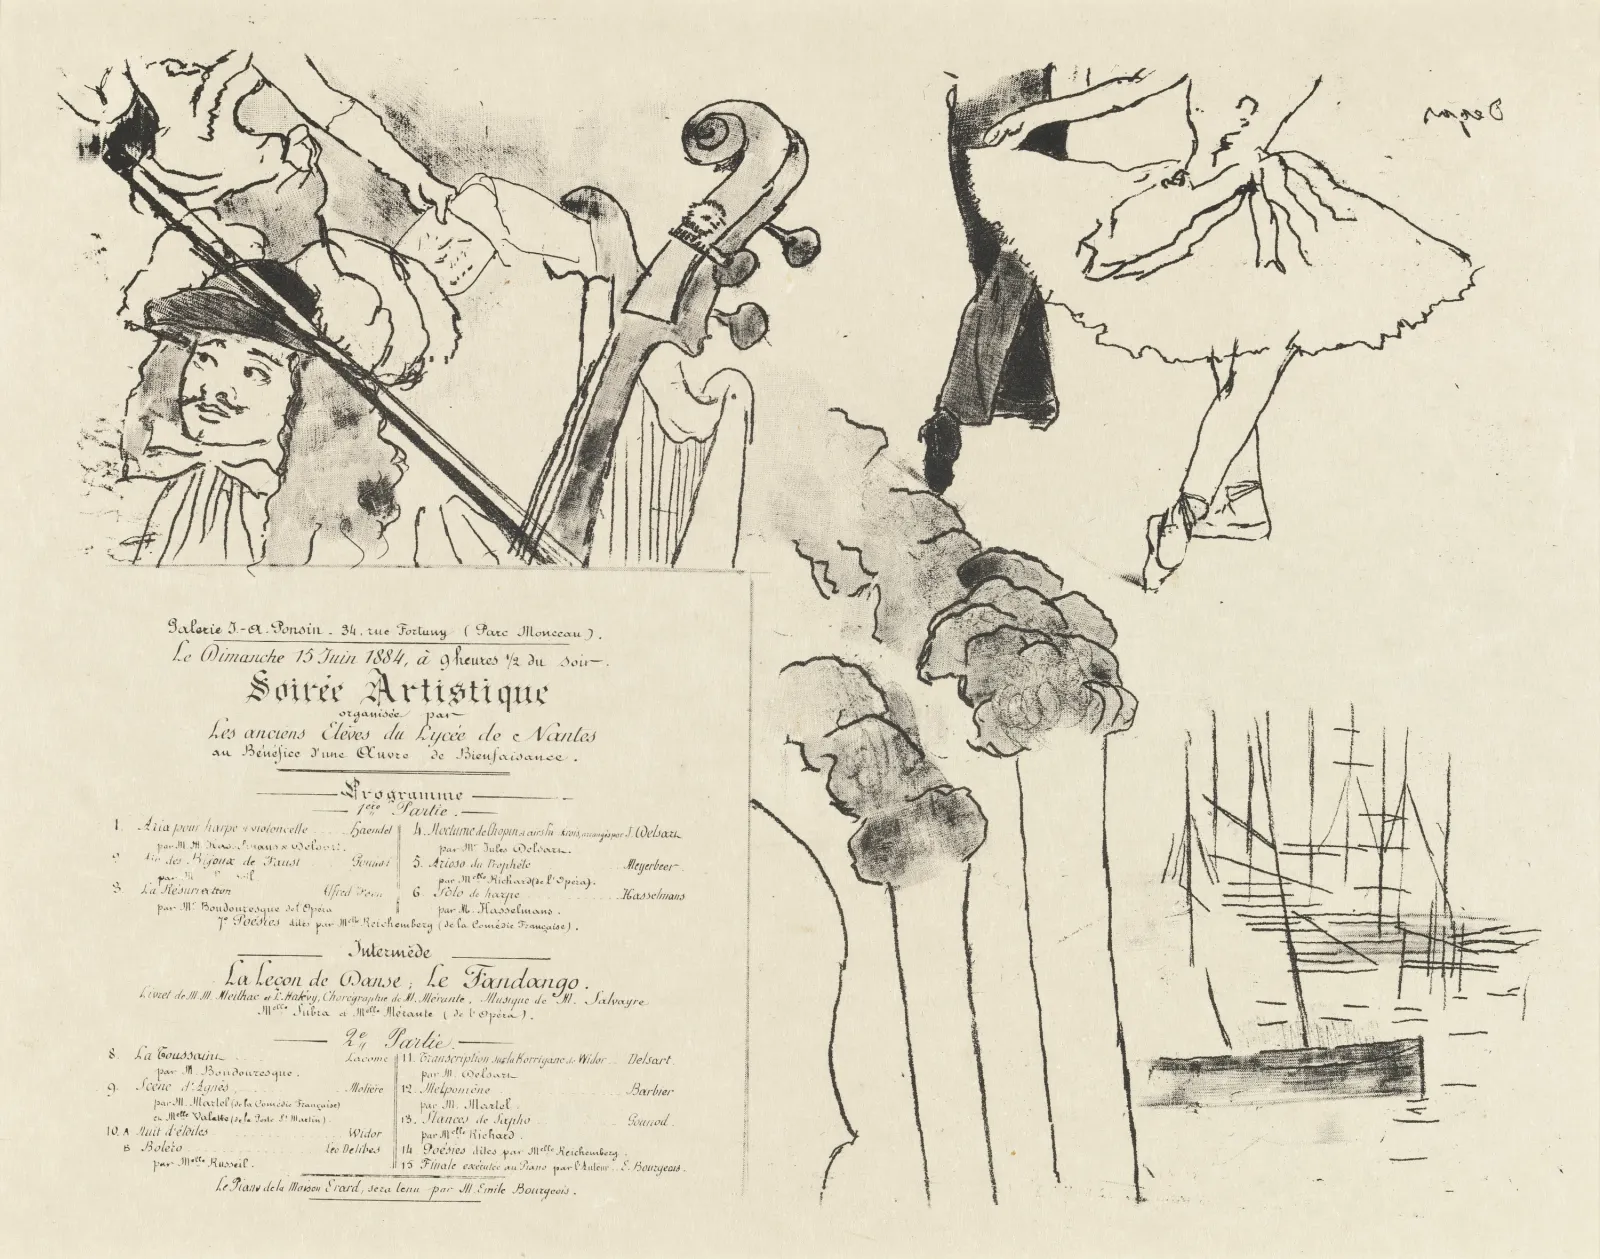 Degas
Galerie J.-A. Ponsin - 34, rue Fortuny (Parc Monceau).
Le Dimanche 15 Juin 1884, à 9 heures 1/2 du soir.
Soirée Artistique
organisée par
Les anciens Elèves du Lycée de Nantes
au Bénéfice d'une Œuvre de Bienfaisance.
Programme
1ère Partie.
1. Aria pour harpe & violoncelle Haendel
par M.M. Delsart.
2. Air des Bijoux de Faust Gounod
par M
3. La Résurrection Alfred
par Mr Boudouresque de l'Opéra
4. Nocturne de Chopin et airs arrangés par J. Delsart
par Mr Jules Delsart.
5. Arioso du Prophète Meyerbeer
par Melle Richard (de l'Opéra).
6 Solo de harpe Hasselmans
par M. Hasselmans.
7e Poésies dites par Melle Reichemberg (de la Comédie Française).
Intermède
La Leçon de Danse; Le Fandango.
Livret de M.M. Meilhac et L. Halévy, Chorégraphie de M. Mérante, Musique de M. Salvayre
Melle Subra et Melle Mérante (de l'Opéra).
2e Partie.
8. La Toussaint Lacome
par M. Boudouresque.
9. Scène d'Agnès Molière
par M. Martel (de la Comédie Française)
et Melle Valette (de la Porte St Martin).
10. A Nuit d'étoiles Widor
B Boléro Léo Delibes
par Melle Russeil.
11. Transcription sur la Korrigane de Widor Delsart
par M. Delsart
12. Melpomène Barbier
par M. Martel.
13. Stances de Sapho Gounod
par Melle Richard.
14 Poésies dites par Melle Reichemberg
15 Finale exécutée au Piano par l'Auteur E. Bourgeois.
Le Piano de la Maison Erard, sera tenu par M. Emile Bourgeois.